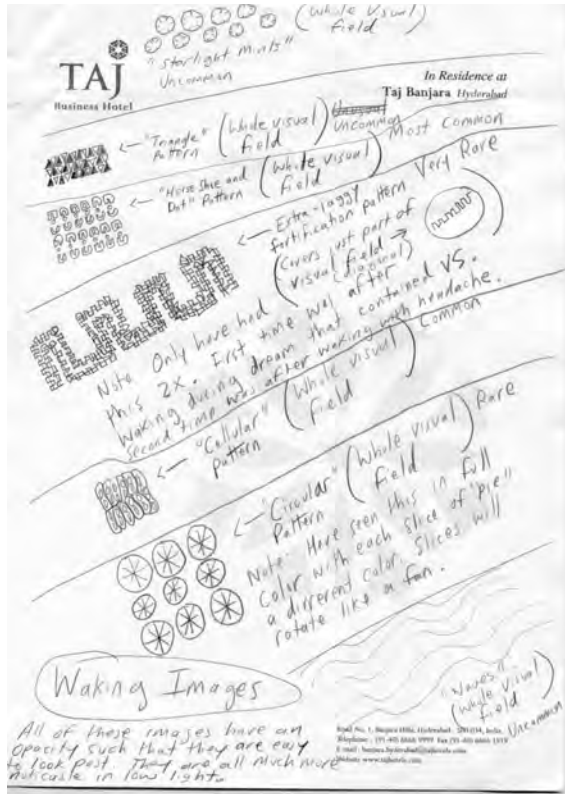 (Whole Visual
field)
"Starlight Mints"
Uncommon
TAJ
Business Hotel
In Residence at
Taj Banjara Hyderabad
"Triangle" Pattern
(Whole visual field)
Uncommon
"Horse Shoe and Dot" Pattern
(Whole visual field)
Most common
Extra-laggy
fortification pattern
Very Rare
(Covers just part of
visual field →
(diagonal))
Note: Only have had
this 2X. First time was after
waking during dream that contained VS.
Second time was after waking with headache.
"Cellular" pattern
(Whole visual field)
Common
"Circular" Pattern
(Whole visual field)
Rare
Note: Have seen this in full
color with each slice of "pie"
a different color. Slices will
rotate like a fan.
"Waves"
(Whole visual
field)
Uncommon
Waking Images
All of these images have an
opacity such that they are easy
to look past. They are all much more
noticable in low light.
Road No. 1, Banjara Hills, Hyderabad - 500 034, India.
Telephone : (91-40) 6666 9999 Fax (91-40) 6666 1919
E-mail : banjara.hyderabad@tajhotels.com
Website www.tajhotels.com